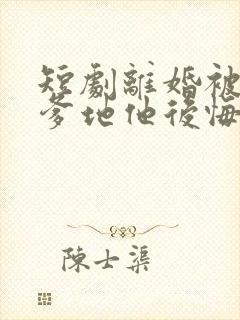 短劇離婚被
爹地他後悔
陳士渠